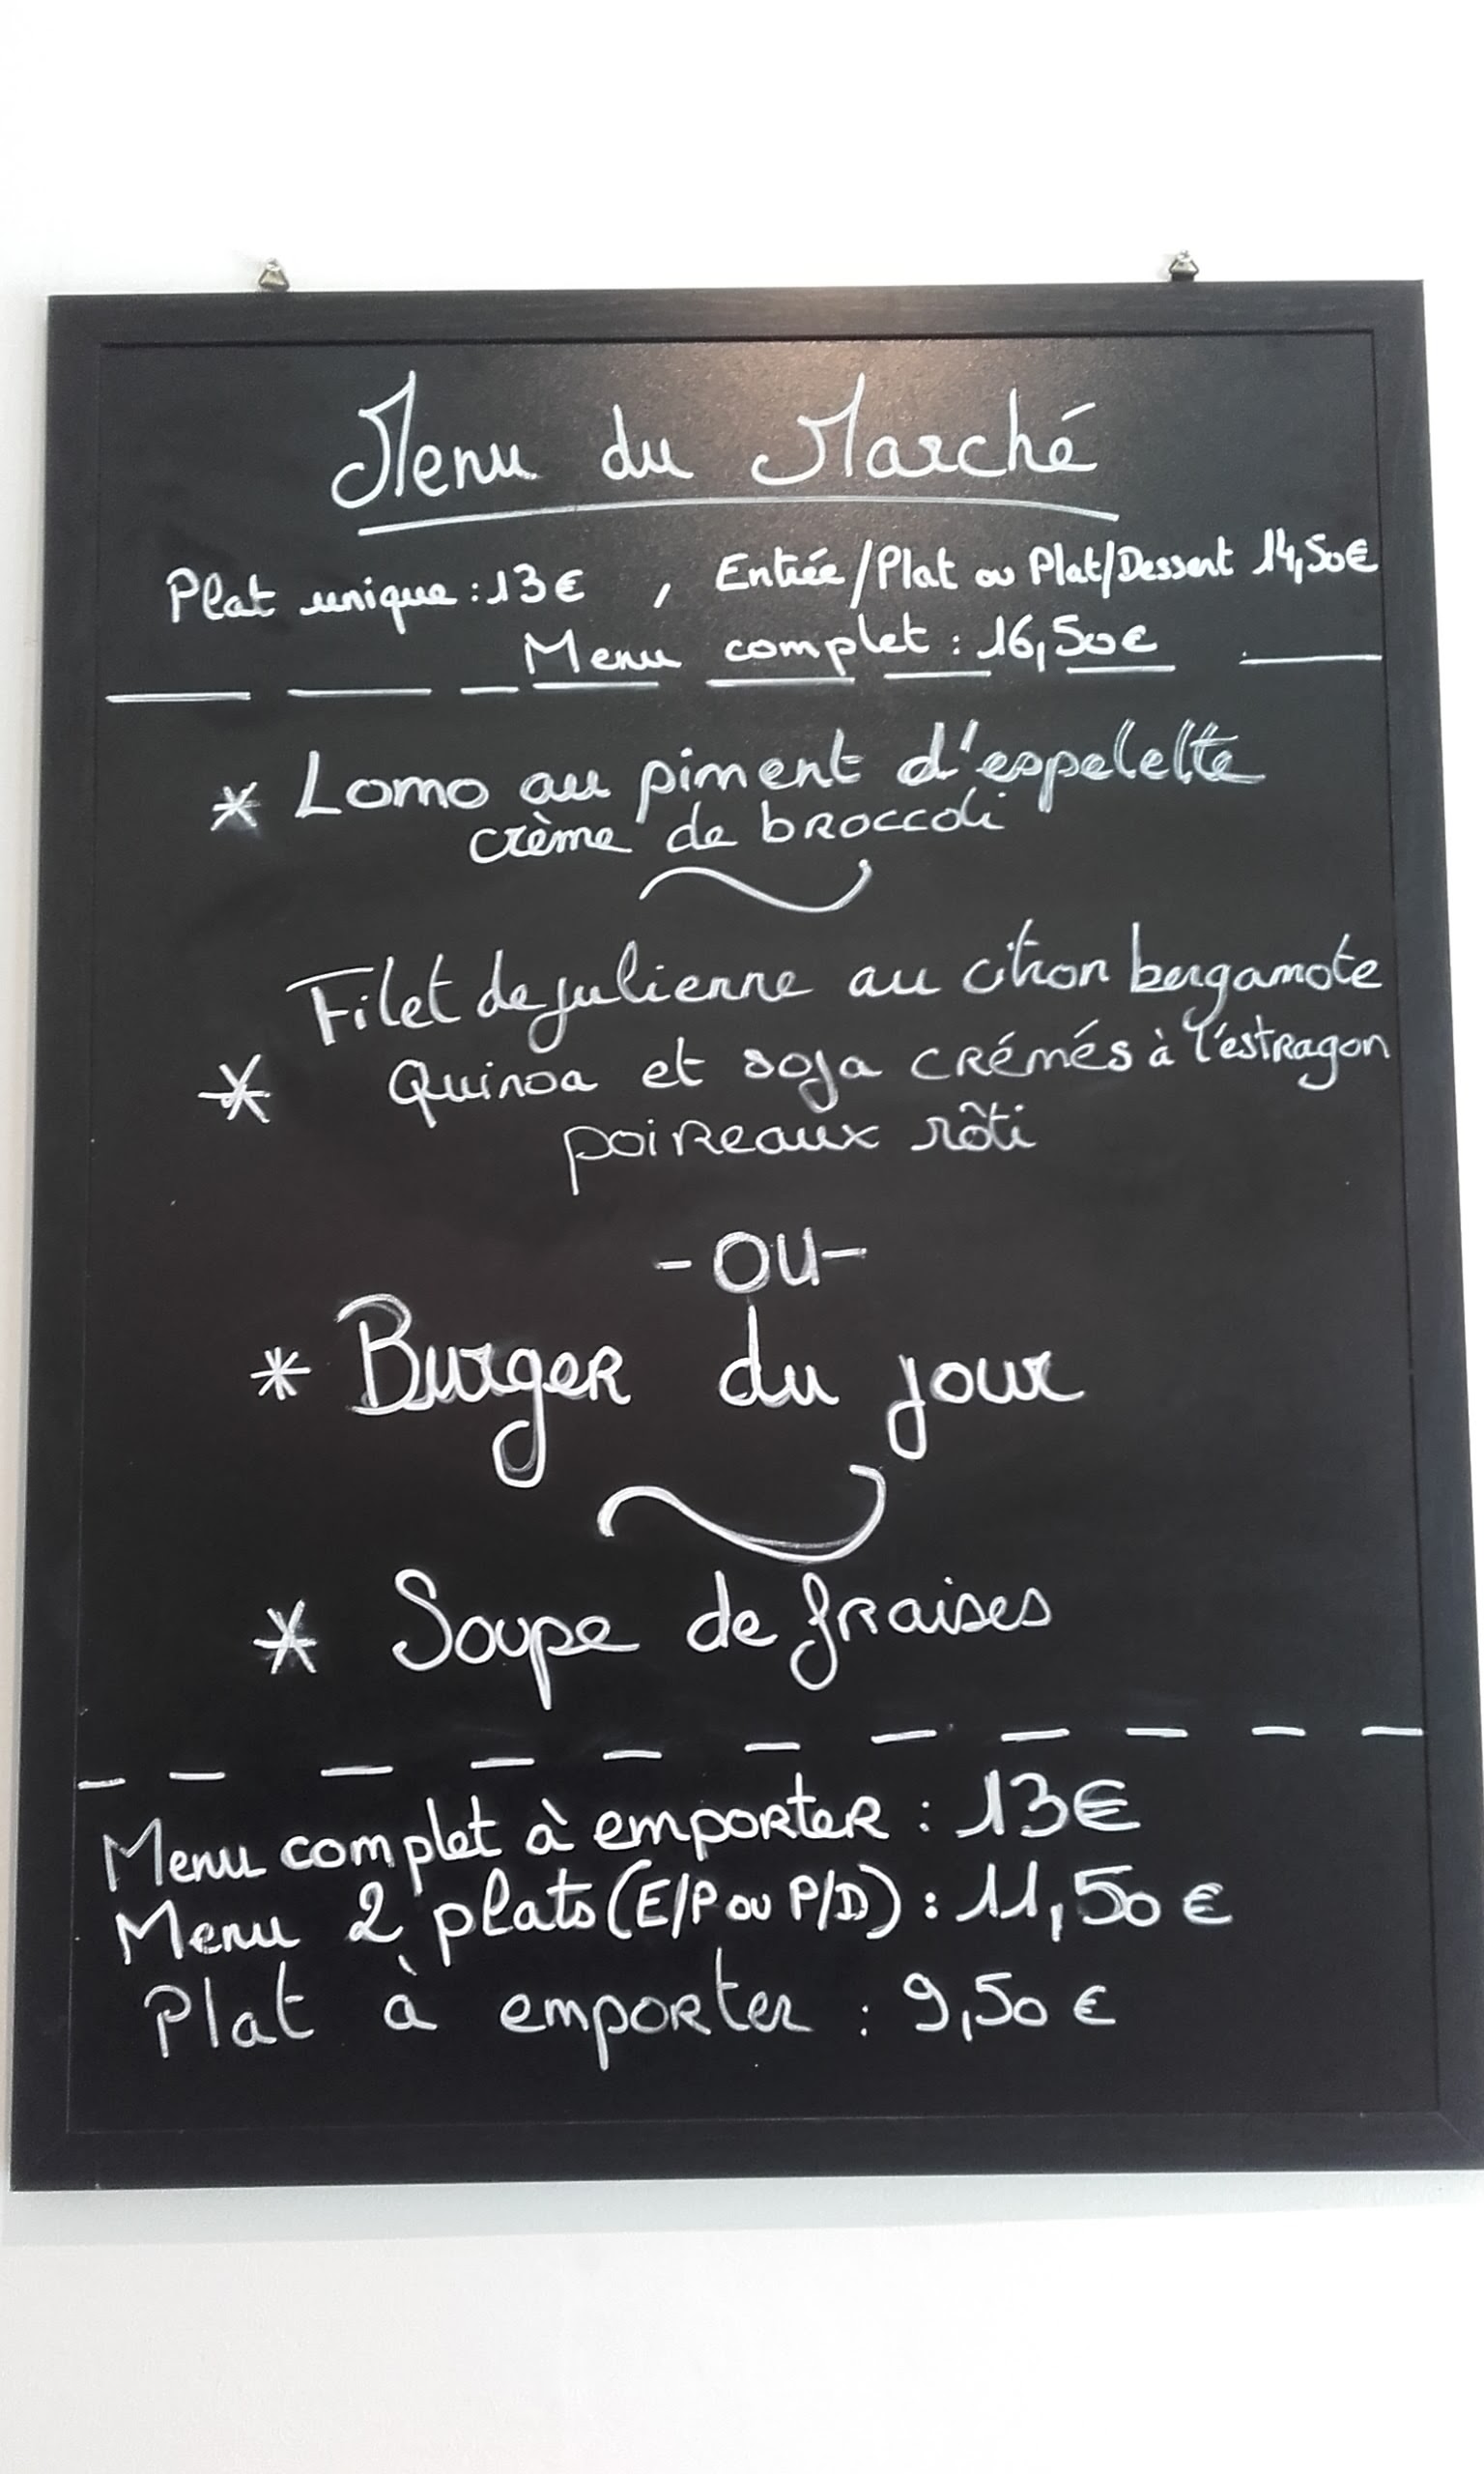 Menu du Marché
Plat unique : 13€ , Entrée/Plat ou Plat/Dessert 14,50€
Menu complet : 16,50€
* Lomo au piment d'espelette
crème de broccoli
Filet de julienne au citron bergamote
* Quinoa et soja crémés à l'estragon
poireaux rôti
-OU-
* Burger du jour
* Soupe de fraises
Menu complet à emporter : 13€
Menu 2 plats (E/P ou P/D) : 11,50€
Plat à emporter : 9,50€